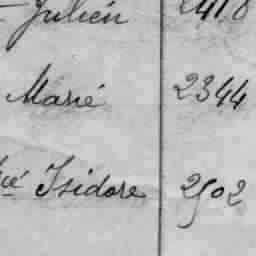 Julien 2418
Marié 2344
Isidore 2502